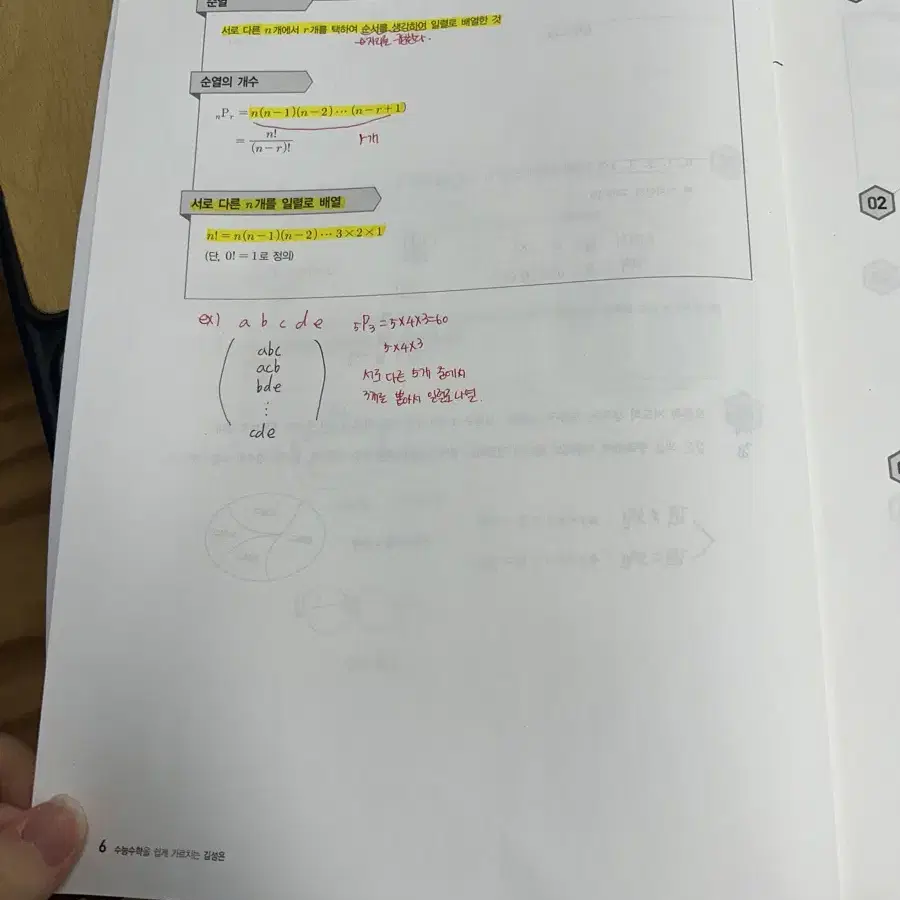 순열
서로 다른 n개에서 r개를 택하여 순서를 생각하여 일렬로 배열한 것
순열의 개수
ₙPᵣ = n(n-1)(n-2)⋯(n-r+1)
= n!/(n-r)!
r개
서로 다른 n개를 일렬로 배열
n! = n(n-1)(n-2)⋯3×2×1
(단, 0! = 1로 정의)
ex) a b c d e ₅P₃ = 5×4×3=60
abc 5×4×3
acb 서로 다른 5개 중에서
bde 3개를 뽑아서 일렬로 나열.
⋮
cde
02
6 수능수학을 쉽게 가르치는 김성은